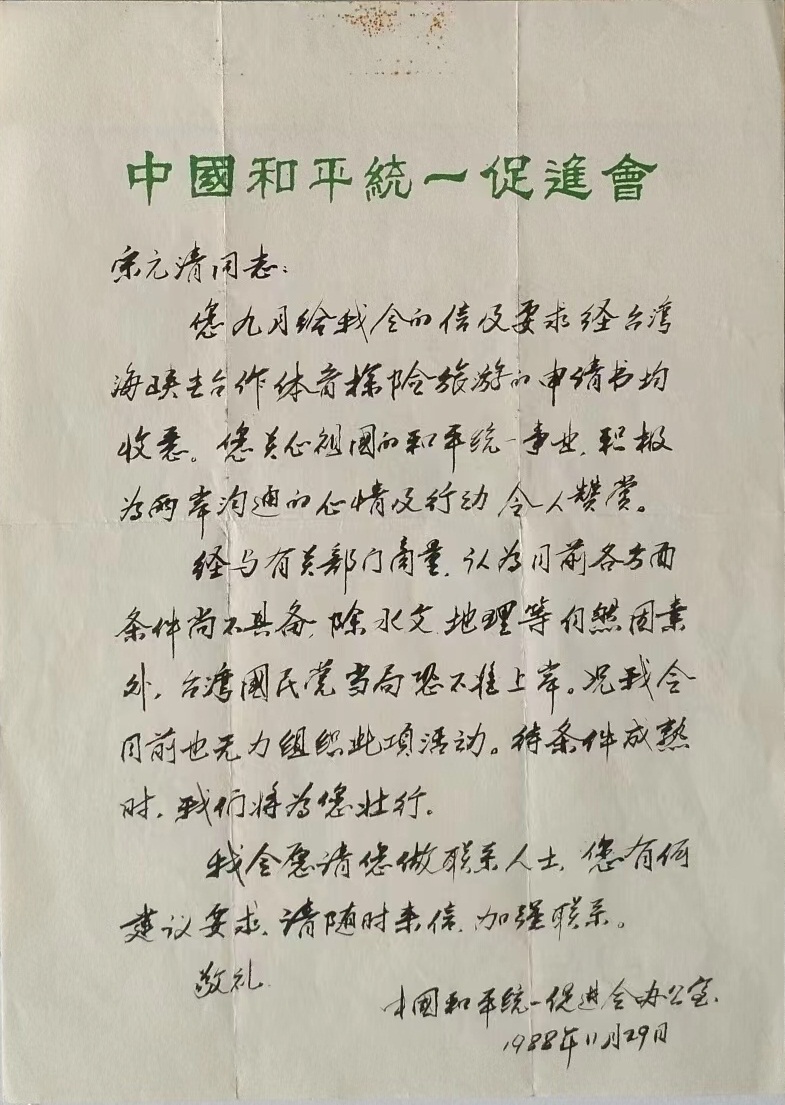 中國和平統一促進會
宗元清同志：
您九月给我会的信及要求经台湾
海峡去台作体育探险旅游的申请书均
收悉。您关心祖國的和平统一事业，积极
为两岸沟通的心情及行动令人赞赏。
经与有关部门商量，认为目前各方面
条件尚不具备，除水文、地理等自然因素
外，台湾國民党当局恐不准上岸。况我会
目前也无力组织此项活动。待条件成熟
时，我们将为您壮行。
我会愿请您做联系人士，您有何
建议要求，请随时来信，加强联系。
敬礼
中國和平统一促进会办公室.
1988年11月29日